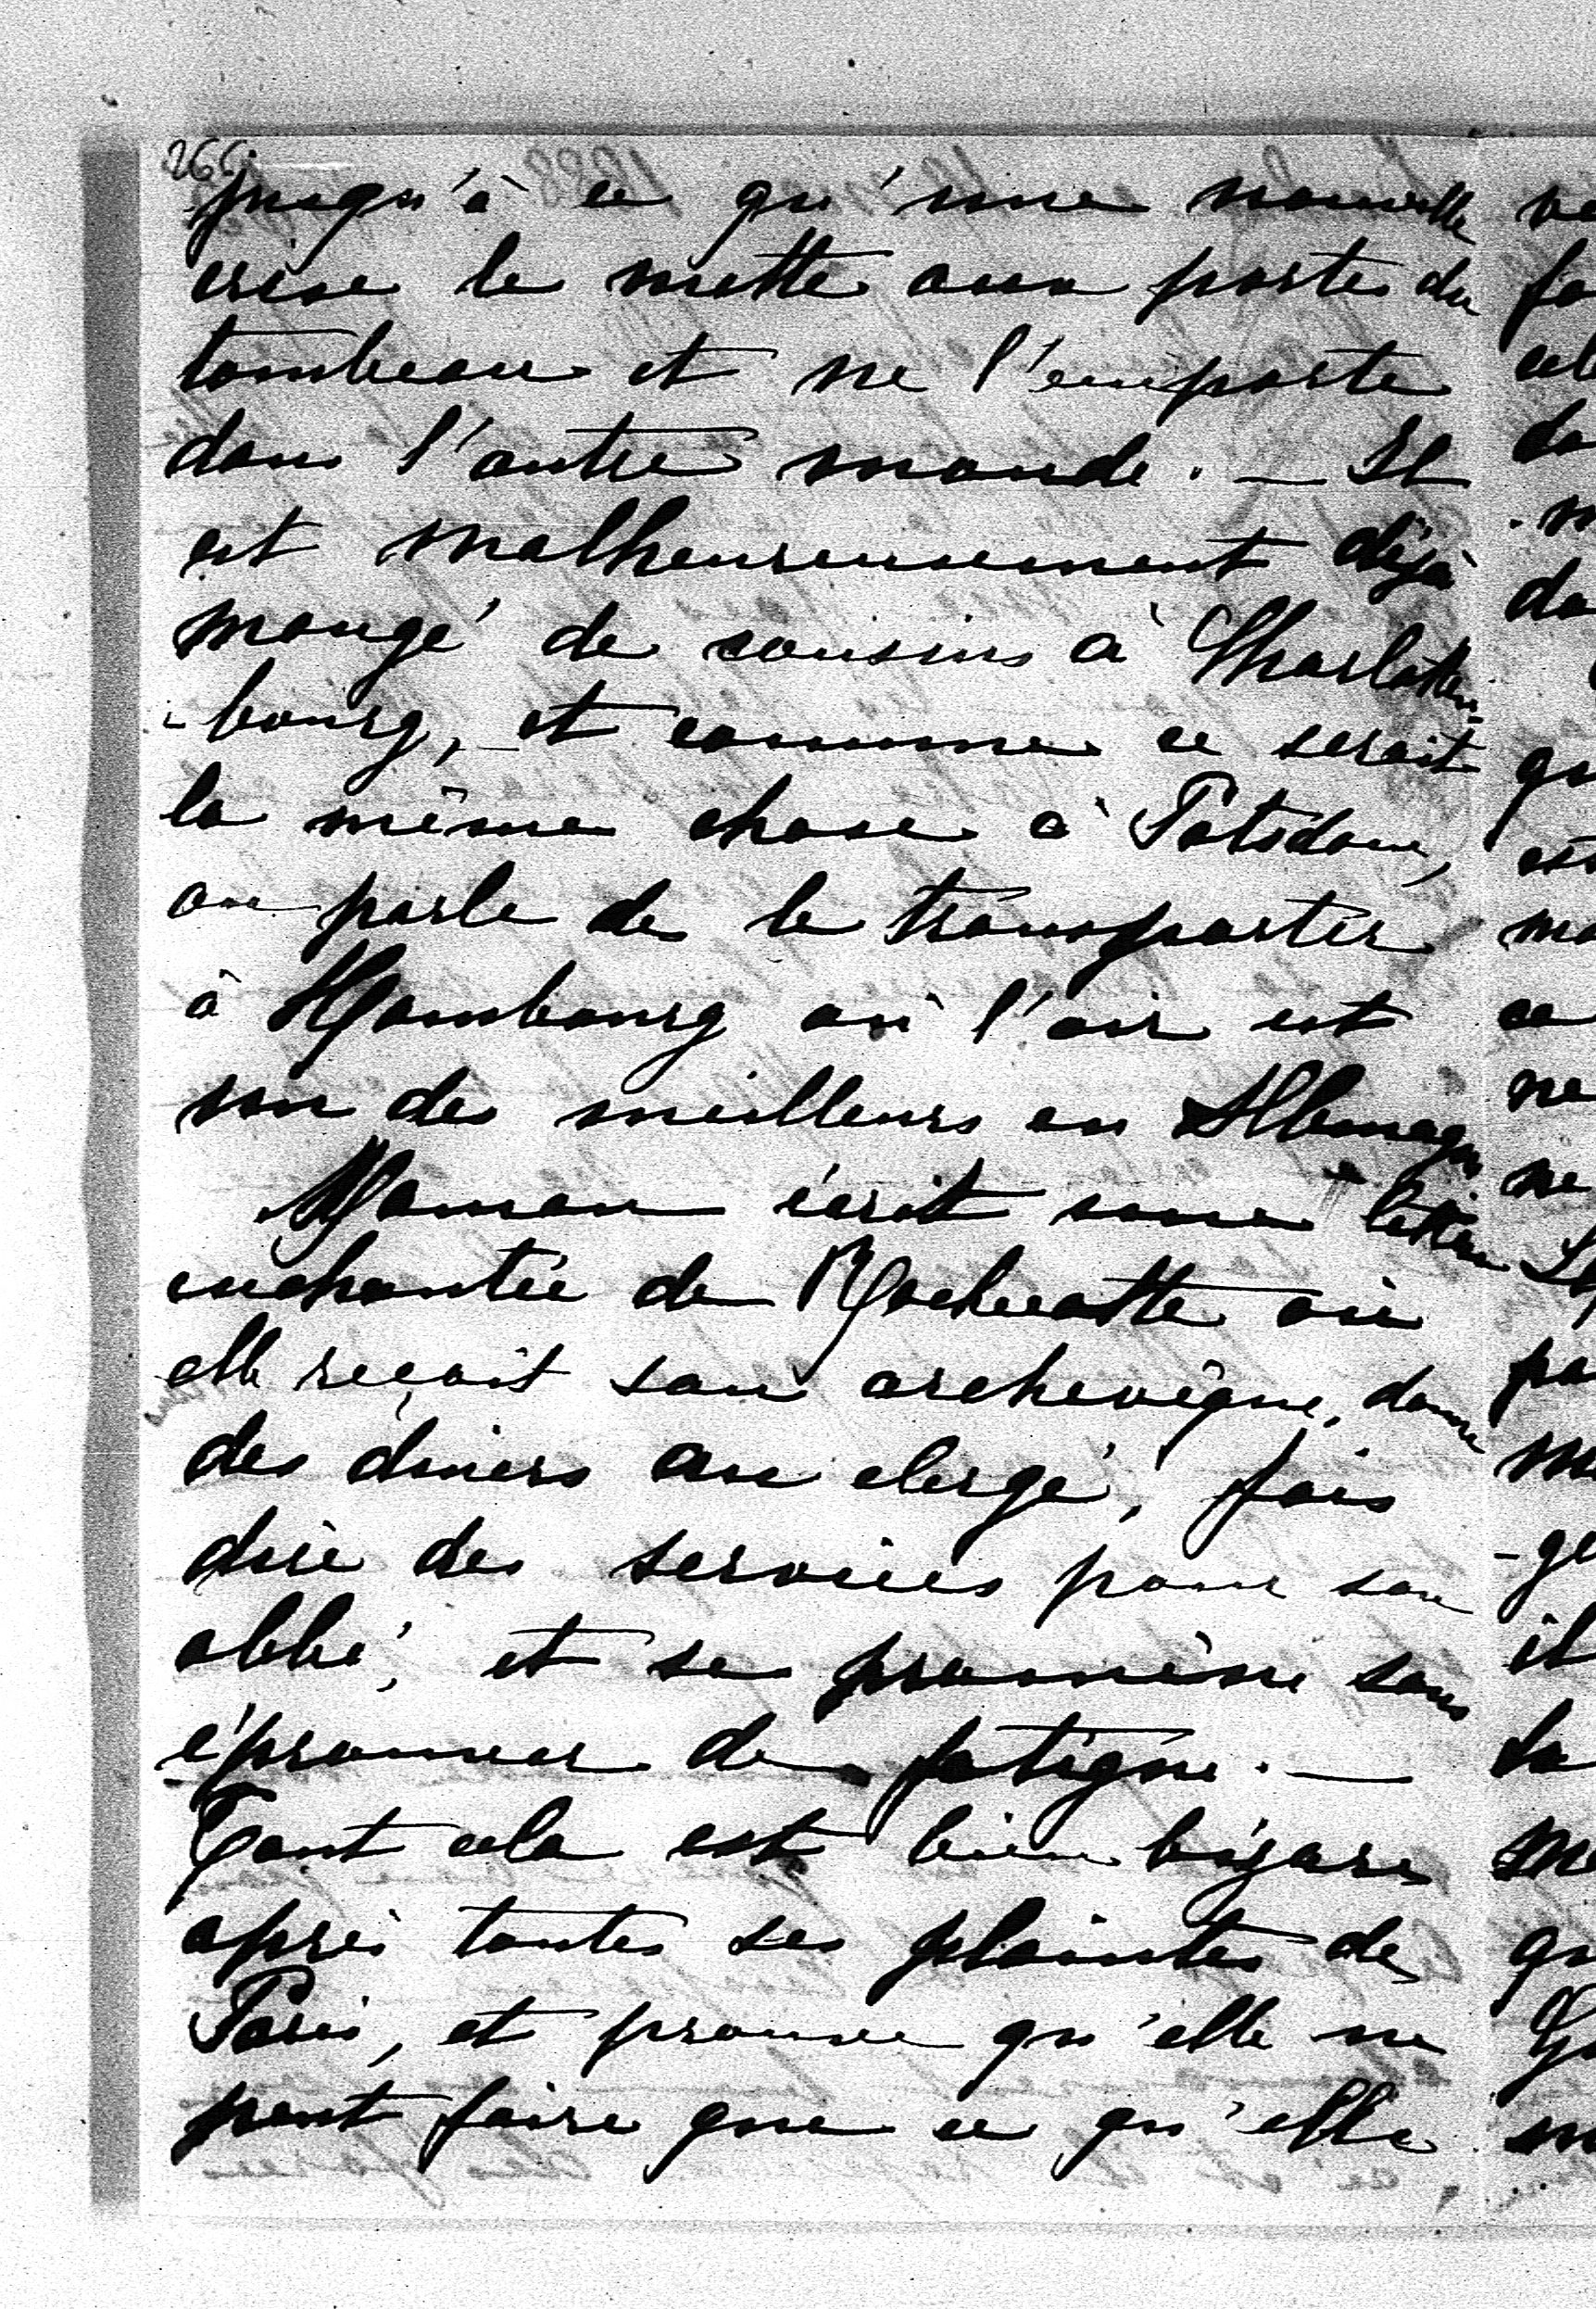 266
jusqu'à ce qu'une nouvelle
crise le mette aux portes du
tombeau et ne l'emporte
dans l'autre monde. — Il
est malheureusement déjà
mangé de cousins à Charlotten-
-bourg, et comme ce serait
la même chose à Potsdam,
on parle de le transporter
à Hombourg où l'air est
un des meilleurs en Allemagne
Maman écrit une lettre
enchantée de Rochecotte où
elle reçoit son archevêque, donne
des diners au clergé, fais
dire des services pour son
abbé, et se promène sans
éprouver de fatigue. —
Tout cela est bien bizare
après toutes ses plaintes de
Paris, et prouve qu'elle ne
peut faire que ce qu'elle